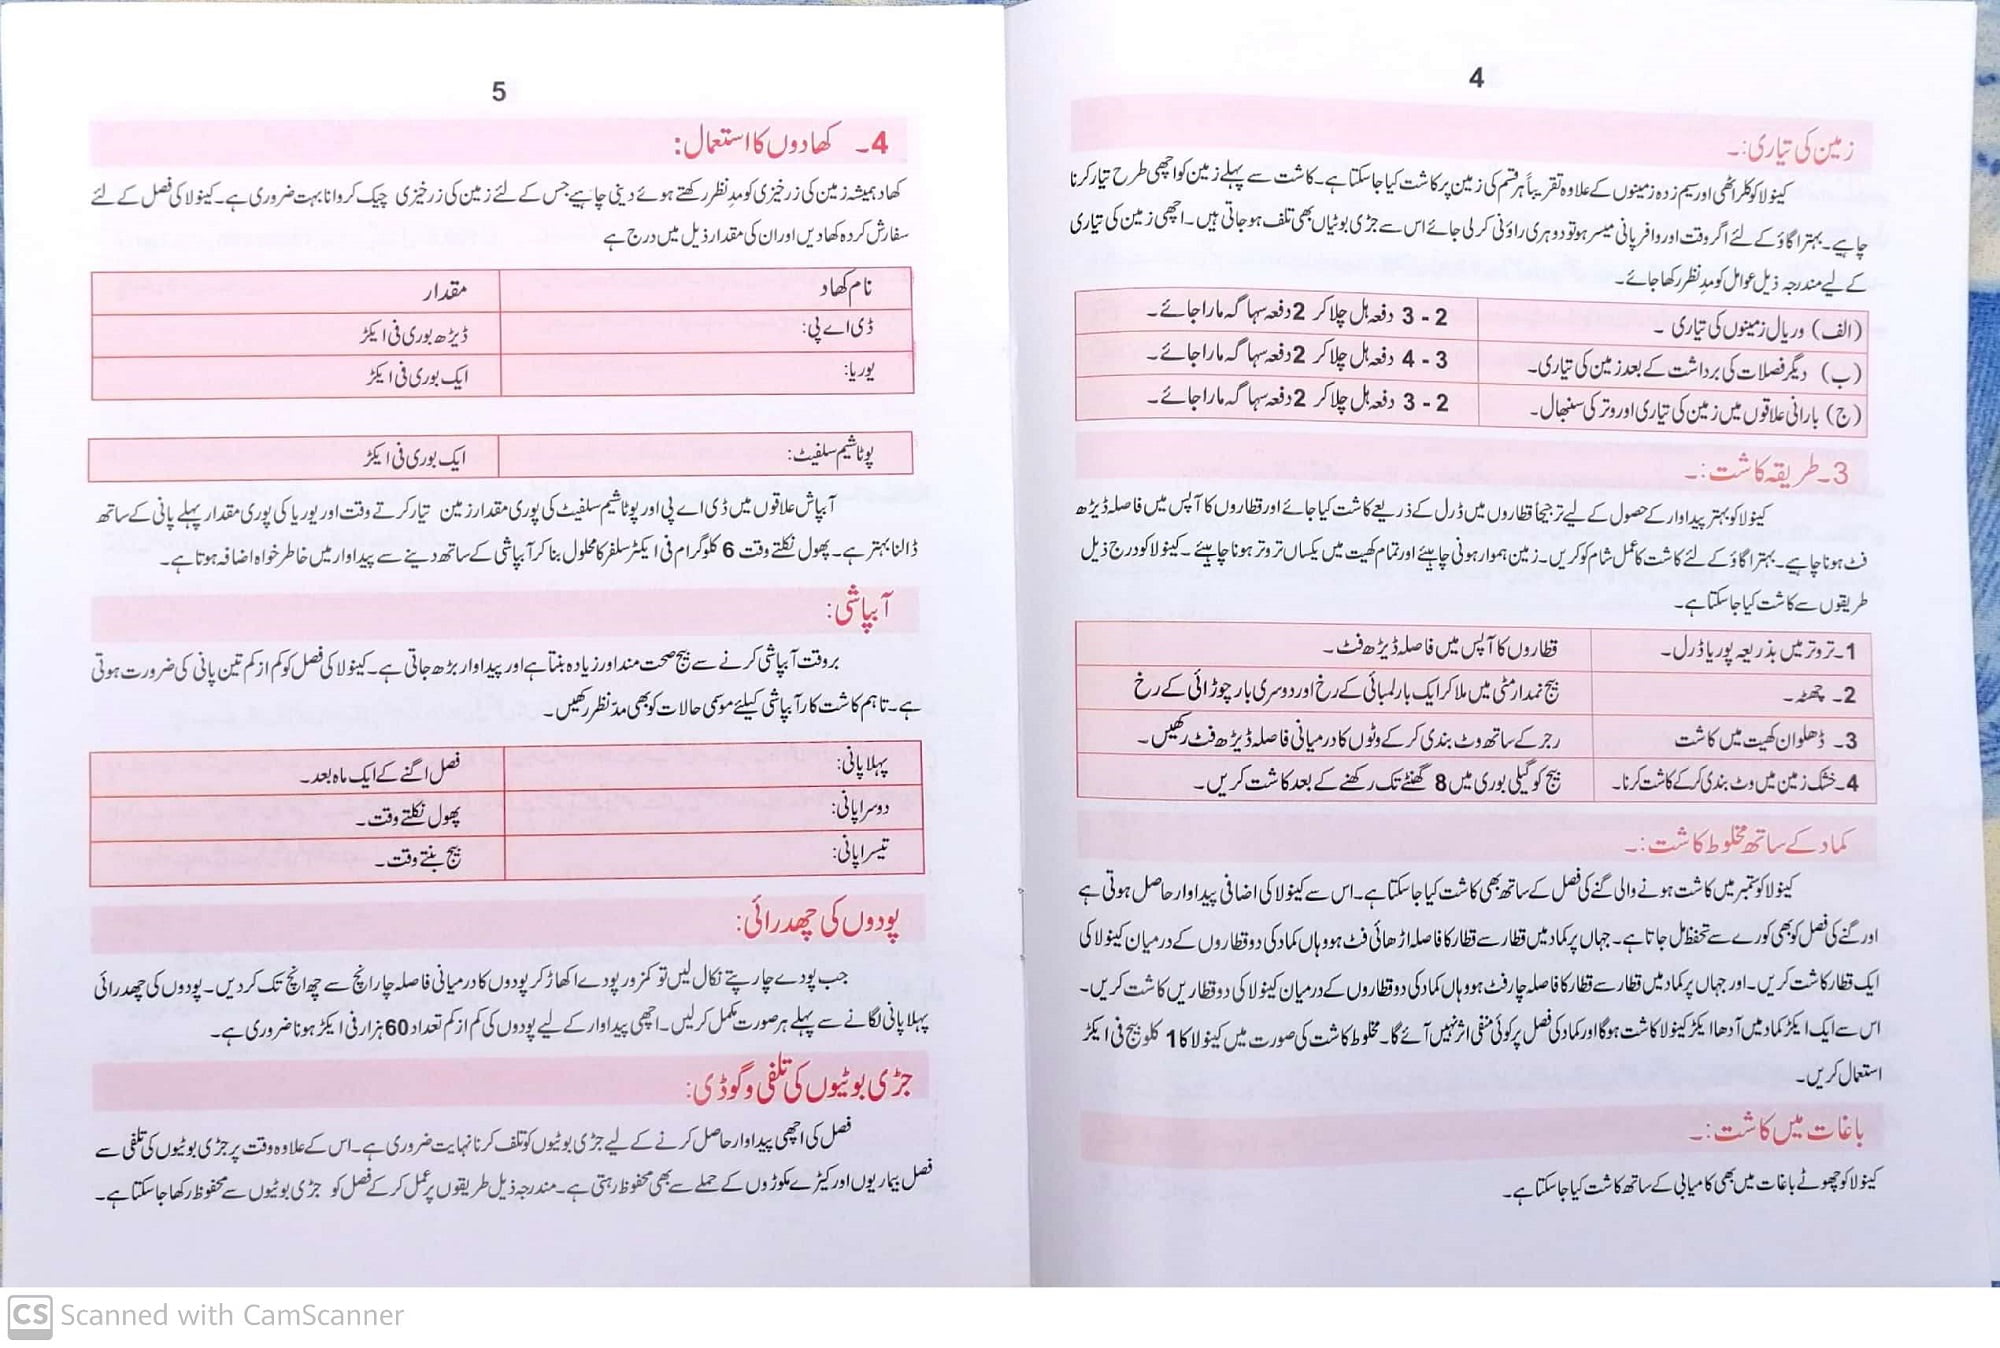 4
زمین کی تیاری:۔
کینولا کو کلراٹھی اور سیم زدہ زمینوں کے علاوہ تقریباً ہر قسم کی زمین پر کاشت کیا جا سکتا ہے۔ کاشت سے پہلے زمین کو اچھی طرح تیار کرنا
چاہیے۔ بہتر اگاؤ کے لئے اگر وقت اور وافر پانی میسر ہو تو دوہری راؤنی کر لی جائے اس سے جڑی بوٹیاں بھی تلف ہو جاتی ہیں۔ اچھی زمین کی تیاری
کے لیے مندرجہ ذیل عوامل کو مدِ نظر رکھا جائے۔
(الف) وریال زمینوں کی تیاری ۔ 2 - 3 دفعہ ہل چلا کر 2 دفعہ سہاگہ مارا جائے۔
(ب) دیگر فصلات کی برداشت کے بعد زمین کی تیاری۔ 3 - 4 دفعہ ہل چلا کر 2 دفعہ سہاگہ مارا جائے۔
(ج) بارانی علاقوں میں زمین کی تیاری اور وتر کی سنبھال۔ 2 - 3 دفعہ ہل چلا کر 2 دفعہ سہاگہ مارا جائے۔
3۔ طریقہ کاشت:۔
کینولا کو بہتر پیداوار کے حصول کے لیے ترجیحاً قطاروں میں ڈرل کے ذریعے کاشت کیا جائے اور قطاروں کا آپس میں فاصلہ ڈیڑھ
فٹ ہونا چاہیے۔ بہتر اگاؤ کے لئے کاشت کا عمل شام کو کریں۔ زمین ہموار ہونی چاہیئے اور تمام کھیت میں یکساں تر وتر ہونا چاہیئے۔ کینولا کو درج ذیل
طریقوں سے کاشت کیا جا سکتا ہے۔
1۔ تر وتر میں بذریعہ پوریا ڈرل۔ قطاروں کا آپس میں فاصلہ ڈیڑھ فٹ۔
2۔ چھٹہ۔ بیج نمدار مٹی میں ملا کر ایک بار لمبائی کے رخ اور دوسری بار چوڑائی کے رخ
3۔ ڈھلوان کھیت میں کاشت رجر کے ساتھ وٹ بندی کر کے وٹوں کا درمیانی فاصلہ ڈیڑھ فٹ رکھیں۔
4۔ خشک زمین میں وٹ بندی کر کے کاشت کرنا۔ بیج کو گیلی بوری میں 8 گھنٹے تک رکھنے کے بعد کاشت کریں۔
کماد کے ساتھ مخلوط کاشت:۔
کینولا کو ستمبر میں کاشت ہونے والی گنے کی فصل کے ساتھ بھی کاشت کیا جا سکتا ہے۔ اس سے کینولا کی اضافی پیداوار حاصل ہوتی ہے
اور گنے کی فصل کو بھی کورے سے تحفظ مل جاتا ہے۔ جہاں پر کماد میں قطار سے قطار کا فاصلہ اڑھائی فٹ ہو وہاں کماد کی دو قطاروں کے درمیان کینولا کی
ایک قطار کاشت کریں۔ اور جہاں پر کماد میں قطار سے قطار کا فاصلہ چار فٹ ہو وہاں کماد کی دو قطاروں کے درمیان کینولا کی دو قطاریں کاشت کریں۔
اس سے ایک ایکڑ کماد میں آدھا ایکڑ کینولا کاشت ہوگا اور کماد کی فصل پر کوئی منفی اثر نہیں آئے گا۔ مخلوط کاشت کی صورت میں کینولا کا 1 کلو بیج فی ایکڑ
استعمال کریں۔
باغات میں کاشت:۔
کینولا کو چھوٹے باغات میں بھی کامیابی کے ساتھ کاشت کیا جا سکتا ہے۔
5
4۔ کھادوں کا استعمال:
کھاد ہمیشہ زمین کی زرخیزی کو مدِ نظر رکھتے ہوئے دینی چاہیے جس کے لئے زمین کی زرخیزی چیک کروانا بہت ضروری ہے۔ کینولا کی فصل کے لئے
سفارش کردہ کھادیں اور ان کی مقدار ذیل میں درج ہے
نام کھاد مقدار
ڈی اے پی: ڈیڑھ بوری فی ایکڑ
یوریا: ایک بوری فی ایکڑ
پوٹاشیم سلفیٹ: ایک بوری فی ایکڑ
آبپاش علاقوں میں ڈی اے پی اور پوٹاشیم سلفیٹ کی پوری مقدار زمین تیار کرتے وقت اور یوریا کی پوری مقدار پہلے پانی کے ساتھ
ڈالنا بہتر ہے۔ پھول نکلتے وقت 6 کلوگرام فی ایکٹر سلفر کا محلول بنا کر آبپاشی کے ساتھ دینے سے پیداوار میں خاطر خواہ اضافہ ہوتا ہے۔
آبپاشی:
بروقت آبپاشی کرنے سے بیج صحت مند اور زیادہ بنتا ہے اور پیداوار بڑھ جاتی ہے۔ کینولا کی فصل کو کم از کم تین پانی کی ضرورت ہوتی
ہے۔ تاہم کاشت کار آبپاشی کیلئے موسمی حالات کو بھی مدّ نظر رکھیں۔
پہلا پانی: فصل اگنے کے ایک ماہ بعد۔
دوسرا پانی: پھول نکلتے وقت۔
تیسرا پانی: بیج بنتے وقت۔
پودوں کی چھدرائی:
جب پودے چار پتے نکال لیں تو کمزور پودے اکھاڑ کر پودوں کا درمیانی فاصلہ چار انچ سے چھ انچ تک کر دیں۔ پودوں کی چھدرائی
پہلا پانی لگانے سے پہلے ہر صورت مکمل کر لیں۔ اچھی پیداوار کے لیے پودوں کی کم از کم تعداد 60 ہزار فی ایکڑ ہونا ضروری ہے۔
جڑی بوٹیوں کی تلفی و گوڈی:
فصل کی اچھی پیداوار حاصل کرنے کے لیے جڑی بوٹیوں کو تلف کرنا نہایت ضروری ہے۔ اس کے علاوہ وقت پر جڑی بوٹیوں کی تلفی سے
فصل بیماریوں اور کیڑے مکوڑوں کے حملے سے بھی محفوظ رہتی ہے۔ مندرجہ ذیل طریقوں پر عمل کر کے فصل کو جڑی بوٹیوں سے محفوظ رکھا جا سکتا ہے۔
CS Scanned with CamScanner